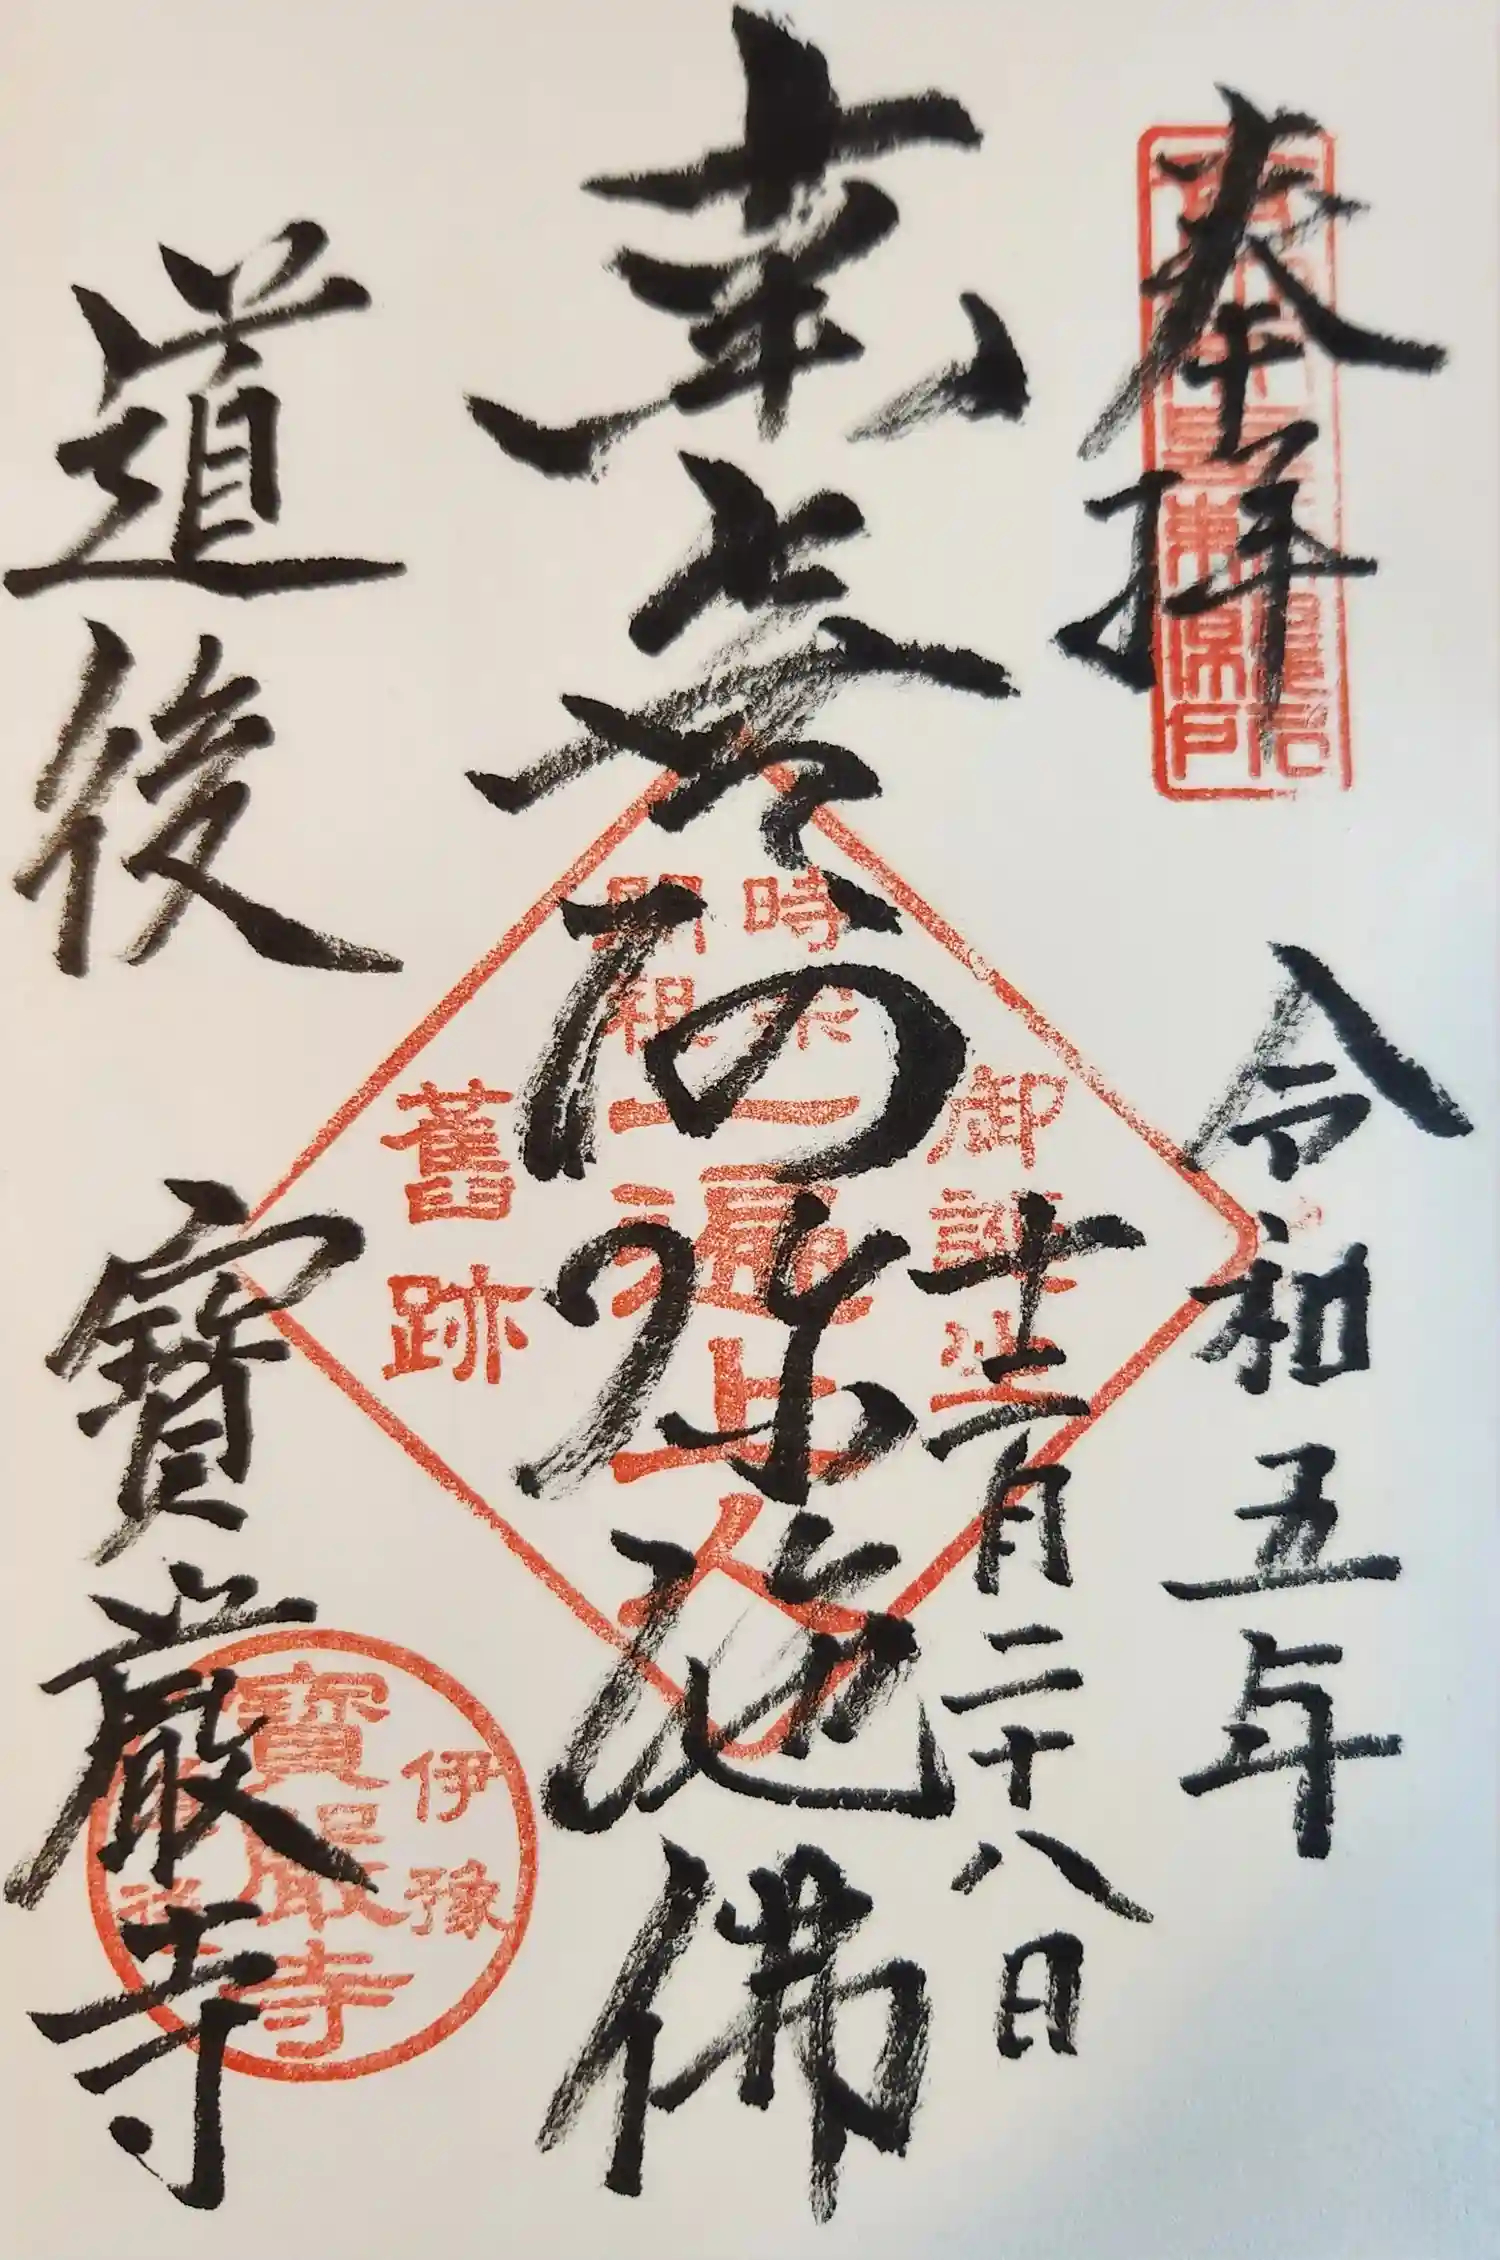 奉拝
令和五年
十二月二十八日
南無阿弥陀佛
時宗
開祖
御誕生
一遍上人
舊跡
道後 寶嚴寺
伊豫
寶嚴寺